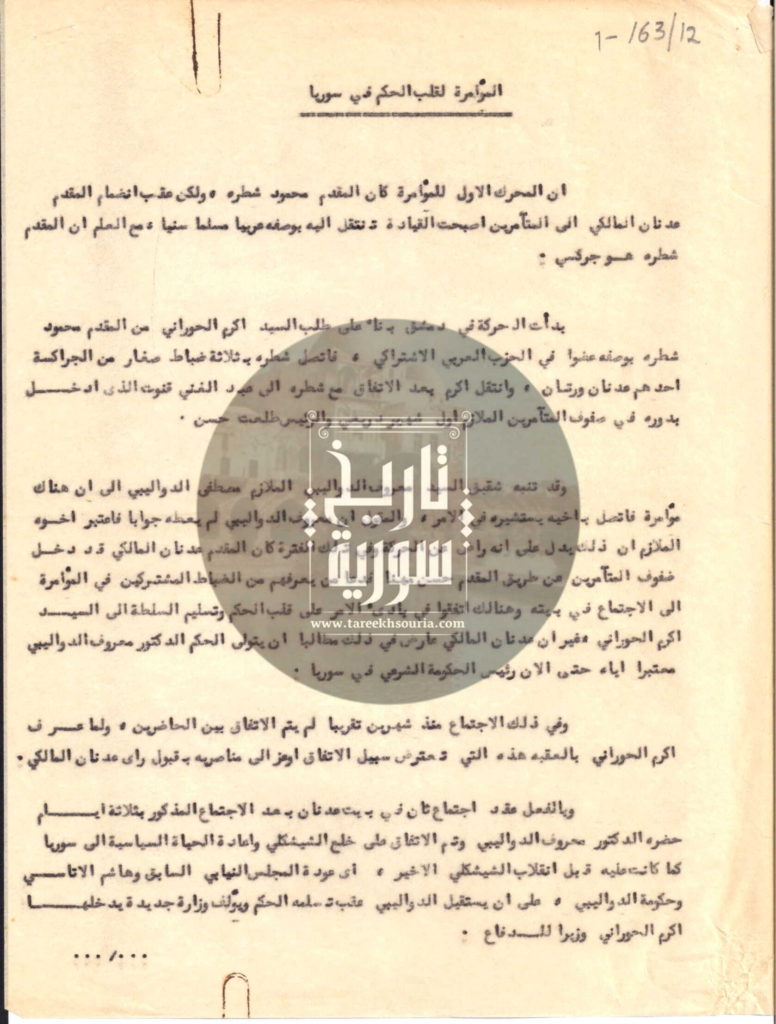 1- 163/12
المؤامرة لقلب الحكم في سوريا
ان المحرك الاول للمؤامرة كان المقدم محمود شطره ، ولكن عقب انضمام المقدم
عدنان المالكي الى المتآمرين اصبحت القيادة تنتقل اليه بوصفه عربيا مسلما سنيا ، مع العلم ان المقدم
شطره هــو جركسي .
بدأت الحركة في دمشق بناء على طلب السيد اكرم الحوراني من المقدم محمود
شطره بوصفه عضوا في الحزب العربي الاشتراكي ، فاتصل شطره بثلاثة ضباط صغار من الجراكسة
احدهم عدنان ورتان ، وانتقل اكرم بعد الاتفاق مع شطره الى عبد الغني قنوت الذى ادخــل
بدوره في صفوف المتآمرين الملازم اول شهير دريعي والرئيس طلعت حسن .
وقد تنبه شقيق السيد معروف الدواليبي الملازم مصطفى الدواليبي الى ان هناك
مؤامرة فاتصل باخيه يستشيره في الامر ، ان معروف الدواليبي لم يعطه جوابا فاعتبر اخــوه
الملازم ان ذلك يدل على انه راض عن الحركة وفي ذلك الفترة كان المقدم عدنان المالكي قد دخل
صفوف المتآمرين عن طريق المقدم حسن من يعرفهم من الضباط المشتركين في المؤامرة
الى الاجتماع في بيته وهنالك اتفقوا في بادىء الامر على قلب الحكم وتسليم السلطة الى السيــد
اكرم الحوراني ، غير ان عدنان المالكي عارض في ذلك مطالبا ان يتولى الحكم الدكتور معروف الدواليبي
معتبرا اياه حتى الان رئيس الحكومة الشرعي في سوريا .
تاريخ
سورية
www.tareekhsouria.com
وفي ذلك الاجتماع منذ شهرين تقريبا لم يتم الاتفاق بين الحاضرين ، ولما عــرف
اكرم الحوراني بالعقبه هذه التي تعترض سبيل الاتفاق اوعز الى مناصريه بقبول راى عدنان المالكي .
وبالفعل عقد اجتماع ثان في بيت عدنان بعد الاجتماع المذكور بثلاثة ايــــام
حضره الدكتور معروف الدواليبي وتم الاتفاق على خلع الشيشكلي واعادة الحياة السياسية الى سوريا
كما كانت عليه قبل انقلاب الشيشكلي الاخير ، اى عودة المجلس النيابي السابق وهاشم الاتاســي
وحكومة الدواليبي ، على ان يستقيل الدواليبي عقب تسلمه الحكم ويؤلف وزارة جديدة يدخلهــــا
اكرم الحوراني وزيرا للــدفاع .
.../...